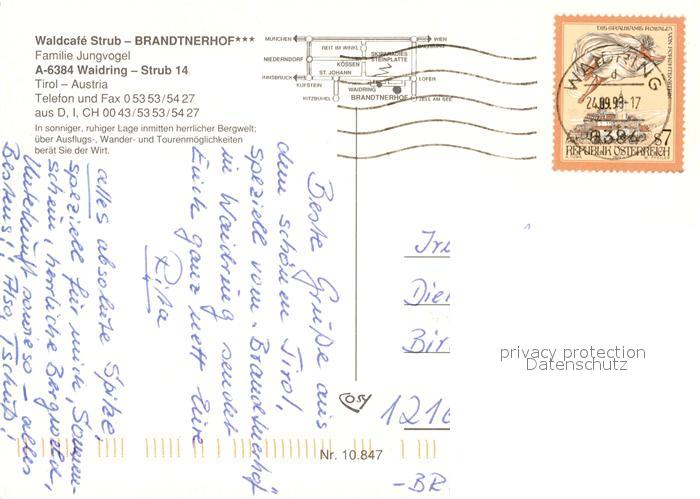 Waldcafé Strub – BRANDTNERHOF***
Familie Jungvogel
A-6384 Waidring – Strub 14
Tirol – Austria
Telefon und Fax 0 53 53 / 54 27
aus D, I, CH 00 43 / 53 53 / 54 27
In sonniger, ruhiger Lage inmitten herrlicher Bergwelt;
über Ausflugs-, Wander- und Tourenmöglichkeiten
berät Sie der Wirt.
MÜNCHEN
WIEN
SALZBURG
REIT IM WINKL
SKIPARADIES
STEINPLATTE
NIEDERNDORF
KÖSSEN
INNSBRUCK
ST. JOHANN
LOFER
KUFSTEIN
WAIDRING
KITZBÜHEL
BRANDTNERHOF
ZELL AM SEE
WAIDRING
24.09.99-17
6384
S7
REPUBLIK ÖSTERREICH
Beste Grüße aus
dem schönen Tirol,
speziell vom „Brandtnerhof"
in Waidring sendet
Euch ganz nett Eure
Rita
alles absolute Spitze,
speziell für mich, Sonnen-
schein, herrliche Bergwelt,
Unterkunft sowieso – alles
Bestens!! Also, Tschüß!
Die
Bir
1216
-BR.
Nr. 10.847
privacy protection
Datenschutz